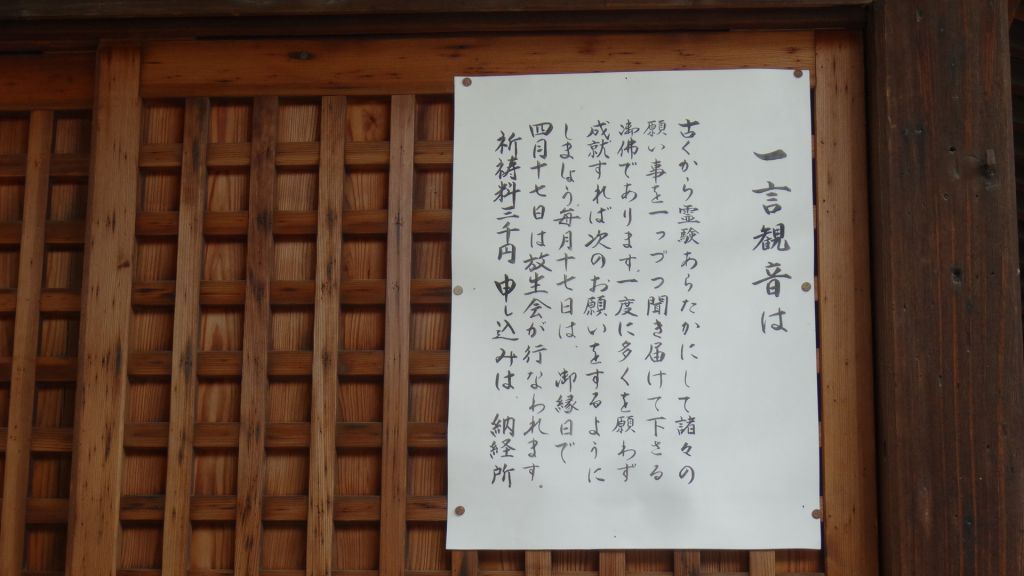 一言観音は
古くから霊験あらたかにして諸々の
願い事を一つづつ聞き届けて下さる
御佛であります。一度に多くを願わず
成就すれば次のお願いをするように
しましょう毎月十七日は、御縁日で
四月十七日は放生会が行なわれます。
祈祷料三千円 申し込みは 納経所